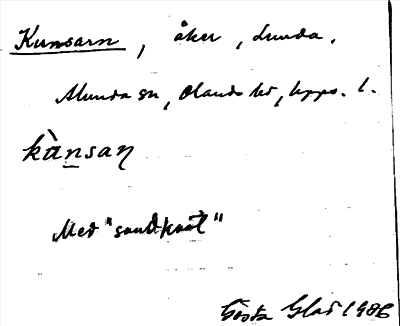 Kunsarn, åker, Lunda.
Alunda sn, Olands hd, Upps. l.
kùnsaɳ
Med "sandknat"
Gösta Glad 1986